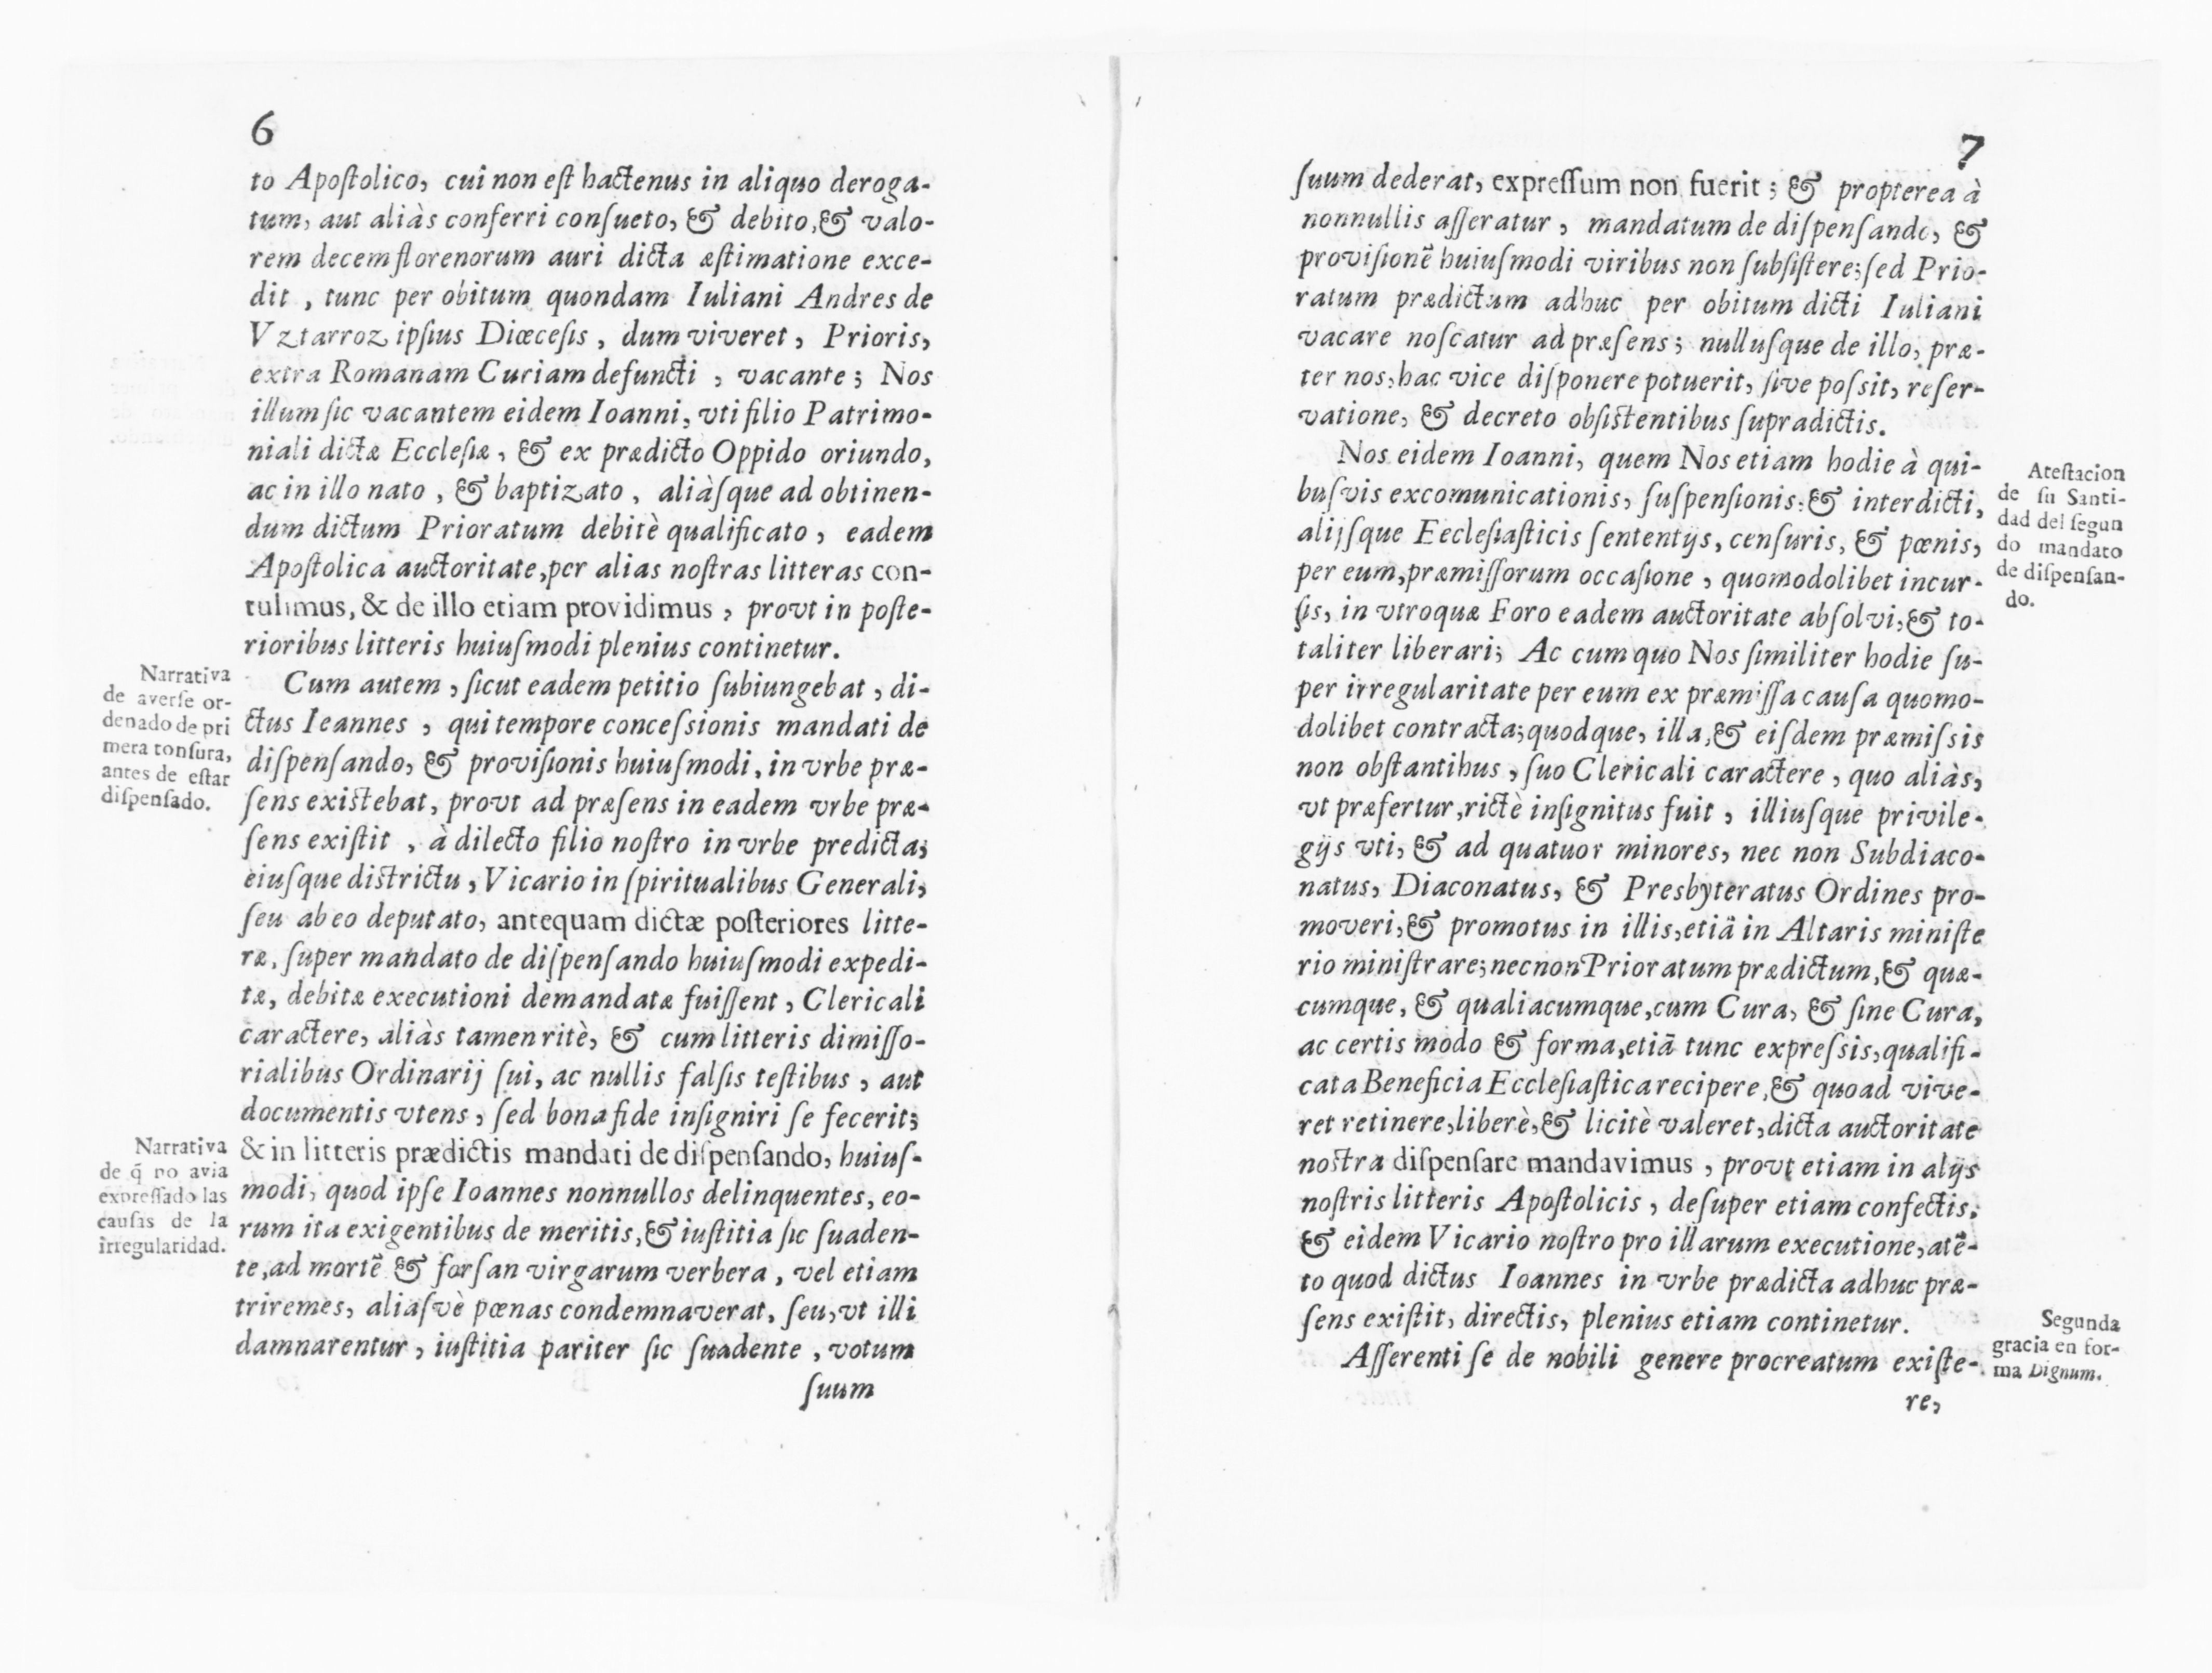 6
to Apoſtolico, cui non eſt hactenus in aliquo deroga-
tum, aut aliàs conferri conſueto, & debito, & valo-
rem decem florenorum auri dicta æſtimatione exce-
dit , tunc per obitum quondam Iuliani Andres de
Vztarroz ipſius Diœceſis , dum viveret , Prioris,
extra Romanam Curiam defuncti , vacante ; Nos
illum ſic vacantem eidem Ioanni, vti filio Patrimo-
niali dictæ Eccleſiæ , & ex prædicto Oppido oriundo,
ac in illo nato , & baptizato , aliàſque ad obtinen-
dum dictum Prioratum debitè qualificato , eadem
Apoſtolica auctoritate,per alias noſtras litteras con-
tulimus, & de illo etiam providimus , provt in poſte-
rioribus litteris huiuſmodi plenius continetur.
Narrativa
de averſe or-
denado de pri
mera tonſura,
antes de eſtar
diſpenſado.
Cum autem , ſicut eadem petitio ſubiungebat , di-
ctus Ieannes , qui tempore conceſsionis mandati de
diſpenſando, & proviſionis huiuſmodi, in vrbe præ-
ſens exiſtebat, provt ad præſens in eadem vrbe præ-
ſens exiſtit , à dilecto filio noſtro in vrbe predicta;
eiuſque diſtrictu , Vicario in ſpiritualibus Generali,
ſeu ab eo deputato, antequam dictæ poſteriores litte-
ræ, ſuper mandato de diſpenſando huiuſmodi expedi-
tæ, debitæ executioni demandatæ fuiſſent , Clericali
caractere, aliàs tamen ritè, & cum litteris dimiſſo-
rialibus Ordinarij ſui, ac nullis falſis teſtibus , aut
documentis vtens , ſed bona fide inſigniri ſe fecerit;
Narrativa
de q̃ no avia
expreſſado las
cauſas de la
irregularidad.
& in litteris prædictis mandati de diſpenſando, huiuſ-
modi, quod ipſe Ioannes nonnullos delinquentes, eo-
rum ita exigentibus de meritis, & iuſtitia ſic ſuaden-
te,ad mortẽ & forſan virgarum verbera , vel etiam
triremes, aliaſvè pœnas condemnaverat, ſeu,vt illi
damnarentur , iuſtitia pariter ſic ſuadente , votum
ſuum
7
ſuum dederat, expreſſum non fuerit ; & propterea à
nonnullis aſſeratur , mandatum de diſpenſando, &
proviſionẽ huiuſmodi viribus non ſubſiſtere;ſed Prio-
ratum prædictum adhuc per obitum dicti Iuliani
vacare noſcatur ad præſens ; nulluſque de illo, præ-
ter nos,hac vice diſponere potuerit, ſive poſsit, reſer-
vatione, & decreto obſiſtentibus ſupradictis.
Nos eidem Ioanni, quem Nos etiam hodie à qui-
buſvis excomunicationis, ſuſpenſionis, & interdicti,
alijſque Eccleſiaſticis ſententijs, cenſuris, & pœnis,
per eum,præmiſſorum occaſione , quomodolibet incur-
ſis, in vtroquæ Foro eadem auctoritate abſolvi, & to-
taliter liberari; Ac cum quo Nos ſimiliter hodie ſu-
per irregularitate per eum ex præmiſſa cauſa quomo-
dolibet contracta;quodque, illa, & eiſdem præmiſsis
non obſtantibus , ſuo Clericali caractere , quo aliàs,
vt præfertur,rictè inſignitus fuit , illiuſque privile-
gijs vti, & ad quatuor minores, nec non Subdiaco-
natus, Diaconatus, & Presbyteratus Ordines pro-
moveri, & promotus in illis,etiã in Altaris miniſte
rio miniſtrare;necnon Prioratum prædictum, & quæ-
cumque, & qualiacumque,cum Cura, & ſine Cura,
ac certis modo & forma,etiã tunc expreſsis,qualifi-
cata Beneficia Eccleſiaſtica recipere, & quoad vive-
ret retinere,liberè, & licitè valeret,dicta auctoritate
noſtra diſpenſare mandavimus , provt etiam in alijs
noſtris litteris Apoſtolicis , deſuper etiam confectis,
& eidem Vicario noſtro pro illarum executione,atẽ-
to quod dictus Ioannes in vrbe prædicta adhuc præ-
ſens exiſtit, directis, plenius etiam continetur.
Ateſtacion
de ſu Santi-
dad del ſegun
do mandato
de diſpenſan-
do.
Aſſerenti ſe de nobili genere procreatum exiſte-
re,
Segunda
gracia en for-
ma Dignum.